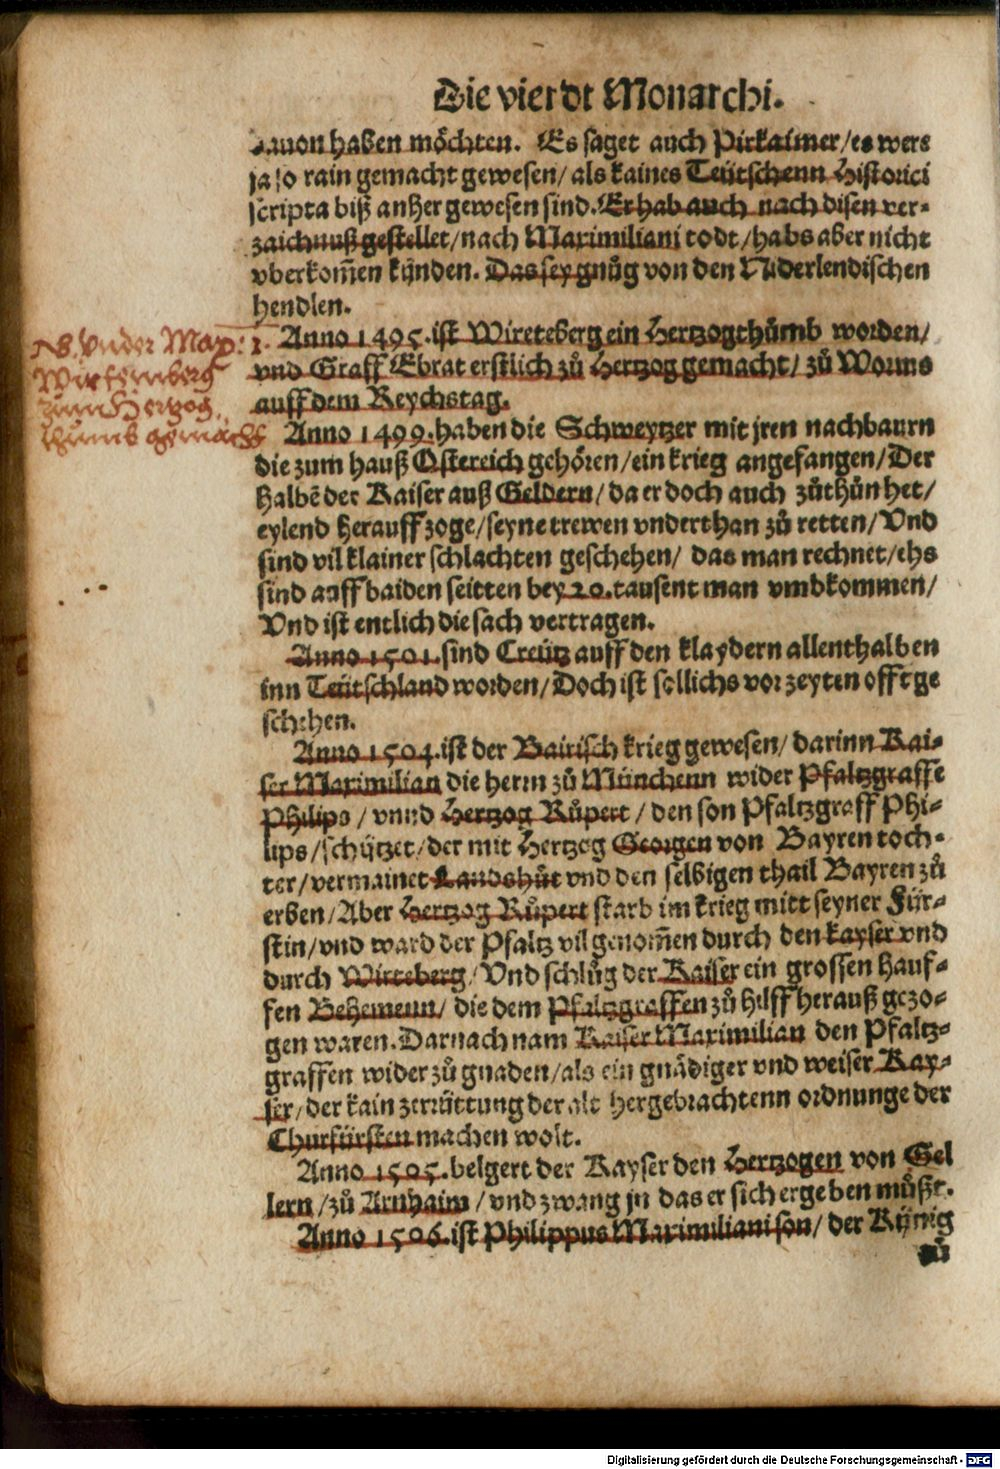 Die vierdt Monarchi.
dauon haben möchten. Es saget auch Pirkaimer/es were
ja so rain gemacht gewesen/als kaines Teütschenn Historici
scripta biß anher gewesen sind. Er hab auch nach disen ver-
zaichnuß gestellet/nach Maximiliani todt/habs aber nicht
vberkom̃en kynden. Das sey gnůg von den Niderlendischen
hendlen.
Anno 1495. ist Wirtẽberg ein Hertzogthůmb worden/
vnd Graff Ebrat erstlich zů Hertzog gemacht/zů Worms
auff dem Reychstag.
NB. Vnder Max: 1.
Wirtemberg
zum Hertzog
thumb gemacht
Anno 1499. haben die Schweytzer mit jren nachbaurn
die zum hauß Ostereich gehören/ein krieg angefangen/Der
halbẽ der Kaiser auß Geldern/da er doch auch zůthůn het/
eylend herauff zoge/seyne trewen vnderthan zů retten/Vnd
sind vil klainer schlachten geschehen/das man rechnet/ehs
sind auff baiden seitten bey 20. tausent man vmbkommen/
Vnd ist entlich die sach vertragen.
Anno 1501. sind Creütz auff den klaydern allenthalben
inn Teütschland worden/Doch ist sollichs vor zeyten offt ge
schehen.
Anno 1504. ist der Bairisch krieg gewesen/darinn Kai-
ser Maximilian die herrn zů Münchenn wider Pfaltzgraffe
Philips/vnnd Hertzog Růpert/den son Pfaltzgraff Phi-
lips/schützet/der mit Hertzog Georgen von Bayren toch-
ter/vermainet Landshůt vnd den selbigen thail Bayren zů
erben/Aber Hertzog Růpert starb im krieg mitt seyner Für-
stin/vnd ward der Pfaltz vil genom̃en durch den kayser vnd
durch Wirtẽberg/Vnd schlůg der Kaiser ein grossen hauf-
fen Behemenn/die dem Pfaltzgraffen zů hilff herauß gezo-
gen waren. Darnach nam Kaiser Maximilian den Pfaltz-
graffen wider zů gnaden/als ein gnädiger vnd weiser Kay-
ser/der kain zerrüttung der alt hergebrachtenn ordnunge der
Churfürsten machen wolt.
Anno 1505. belgert der Kayser den Hertzogen von Gel
lern/zů Arnhaim/vnd zwang jn das er sich ergeben můßt.
Anno 1506. ist Philippus Maximiliani son/der Kynig
zů
Digitalisierung gefördert durch die Deutsche Forschungsgemeinschaft - DFG